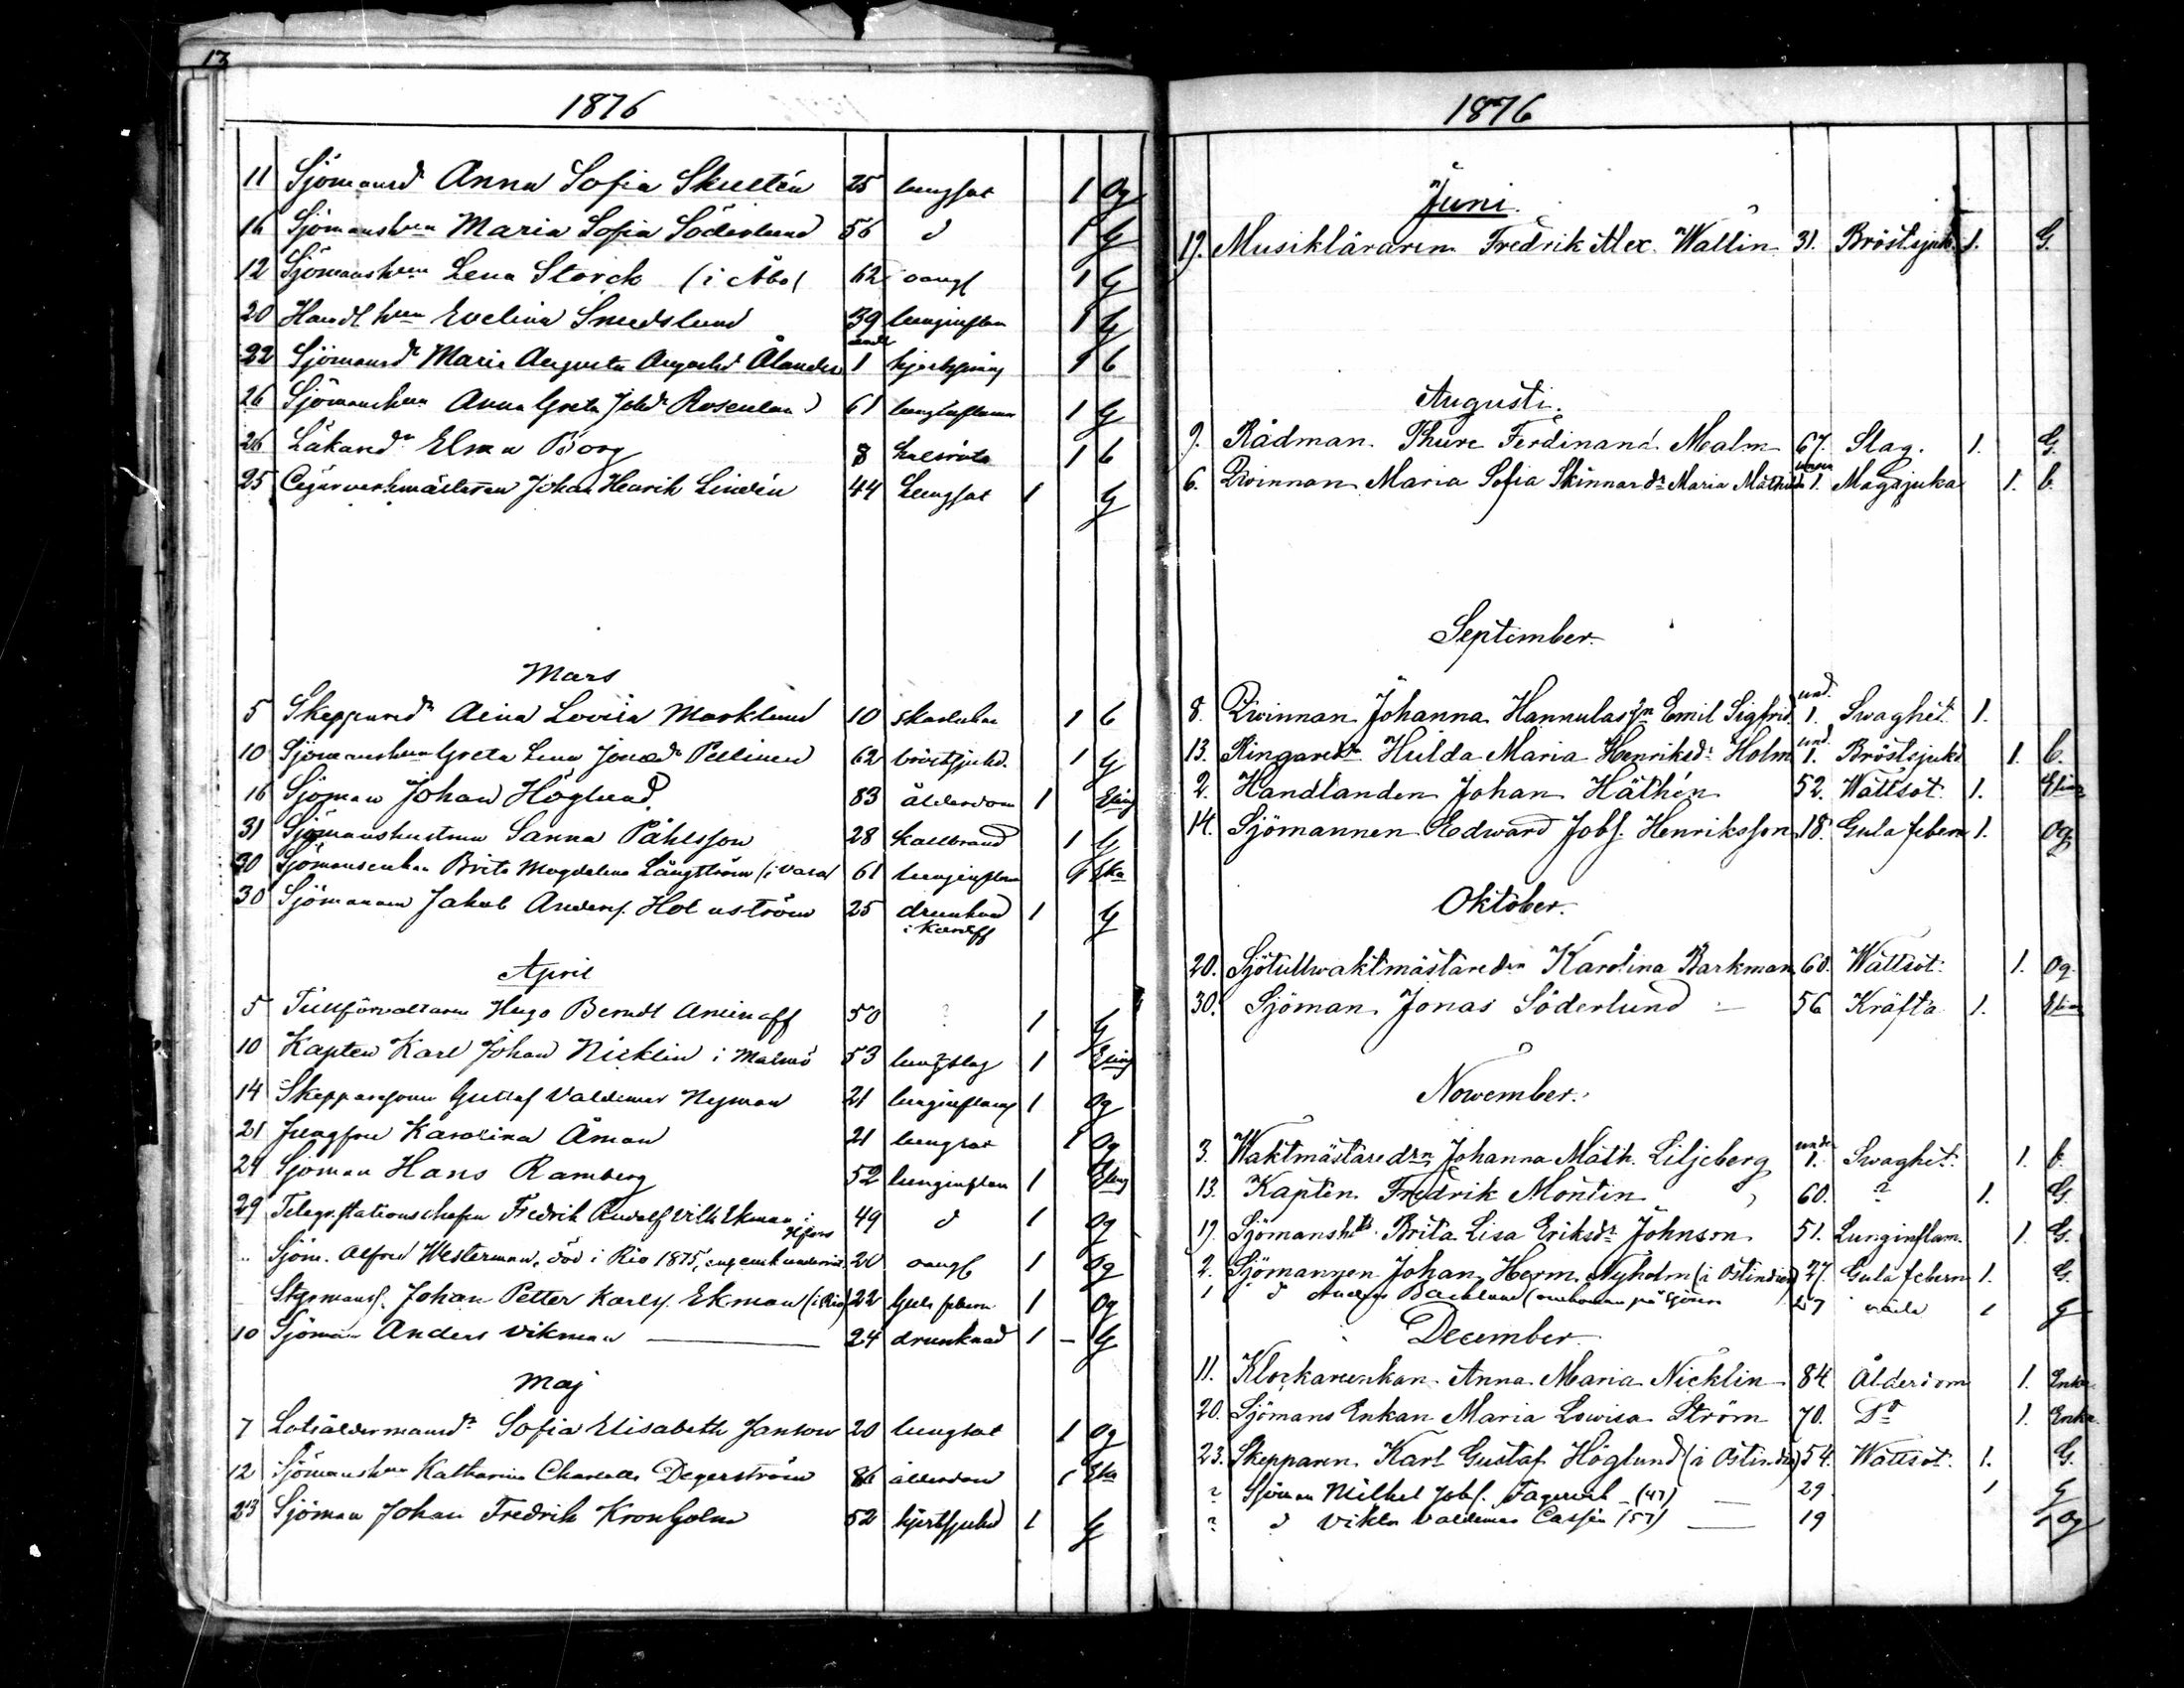 13
1876
11 Sjömansdr Anna Sofia Skultén 25 lungsot 1 Og
16 Sjömanshun Maria Sofia Söderlund 56 d 1 G
12 Sjömanshun Lena Storck (i Åbo) 62 oangf 1 G
20 Handl hun Evelina Smedslund 39 lunginflam 1 G
under
22 Sjömansdr Maria Augusta Ålander 1 1 b
26 Sjömanshun Anna Greta Johdr Rosenlund 61 lunginflamm 1 G
26 Läkaredr Elma Borg 8 halsröta 1 b
25 Cigarverksmästaren Johan Henrik Lindén 44 Lungsot 1 G
Mars
5 Skepparedr Aina Lovisa Marklund 10 skarlakan 1 b
10 Sjömanshun Greta Lena Jonasdr Pellinen 62 bröstsjukd. 1 G
16 Sjöman Johan Höglund 83 ålderdom 1 Ekling
31 Sjömanshustrun Sanna Påhlsson 28 kallbrand 1 G
30 Sjömansenkan Brita Magdalena Långström (i Vasa) 61 lunginflam 1 Eka
30 Sjömannen Jakob Andersf. Holmström 25 drunknad 1 G
i Kardiff
April
5 Tullförvaltaren Hugo Berndt Aminoff 50 ? 1 G
10 Kapten Karl Johan Nicklin i Malmö 53 lungslag 1 Ekling
14 Skepparesonen Gustaf Valdemar Nyman 21 lunginflamf 1 Og
21 Jungfru Karolina Åman 21 lungsot 1 Og
24 Sjöman Hans Ramberg 52 lunginflam 1 Ekling
29 Telegr.stationschefen Fredrik Rudolf Vilh Ekman i 49 d 1 Og
Hfors
Sjöm. Alfred Westerman, död i Rio 1875, 20 oangf 1 Og
Johan Petter Karlsf. Ekman (i Rio) 22 Gula febern 1 Og
10 Sjöman Anders Vikman — 24 drunknad 1 – G
Maj
7 Lotsåldermansdr Sofia Elisabeth Janson 20 lungsot 1 Og
12 Sjömanshun Katharina Charlotta Degerström 86 ålderdom 1 Eka
23 Sjöman Johan Fredrik Kronholm 52 hjertsjukd 1 G
1876
Juni.
19. Musikläraren Fredrik Alex. Wallin 31. Bröstsjukd. 1. G.
Augusti.
9. Rådman Thure Ferdinand Malm 67. Slag. 1. G.
under
6. Qvinnan Maria Sofia Skinnardr Maria Mathilda 1. Magsjuka 1. b.
September.
und.
8. Qvinnan Johanna Hannulas sn Emil Sigfrid 1. Swaghet. 1.
und.
13. Ringaredr Hulda Maria Henriksdr Holm 1. Bröstsjukd 1. b.
2. Handlanden Johan Häthén 52. Wattsot 1. Ekling
14. Sjömannen Edward Johs. Henriksson 18. Gula febern 1. Og
Oktober.
20. Sjötullwaktmästaredrn Karolina Barkman 60. Wattsot 1. Og.
30. Sjöman Jonas Söderlund – 56 Kräfta 1. Ekling
Nowember.
under
3. Waktmästaredrn Johanna Math. Liljeberg 1. Swaghet. 1. b.
13. Kapten Fredrik Montin 60. ? 1. G.
19. Sjömansht Brita Lisa Eriksdr Johnson 51. Lunginflam. 1. G.
2. Sjömannen Johan Herm. Nyholm (i Ostindien) 27. Gula febern 1. G.
1 d Anders Backlund (omkommen på sjön 27 våda 1 G
December.
11. Klockareenkan Anna Maria Nicklin 84 Ålderdom 1. Enka.
20. Sjömans Enkan Maria Lowisa Ström 70. Do 1. Enka.
23. Skepparen Karl Gustaf Höglund (i Ostindien) 54. Wattsot 1. G.
? Sjöman Mikhel Johs. Fagerval – (47) — 29 1 G
? d Viktor Valdemar Cassén (57) — 19 1 Og